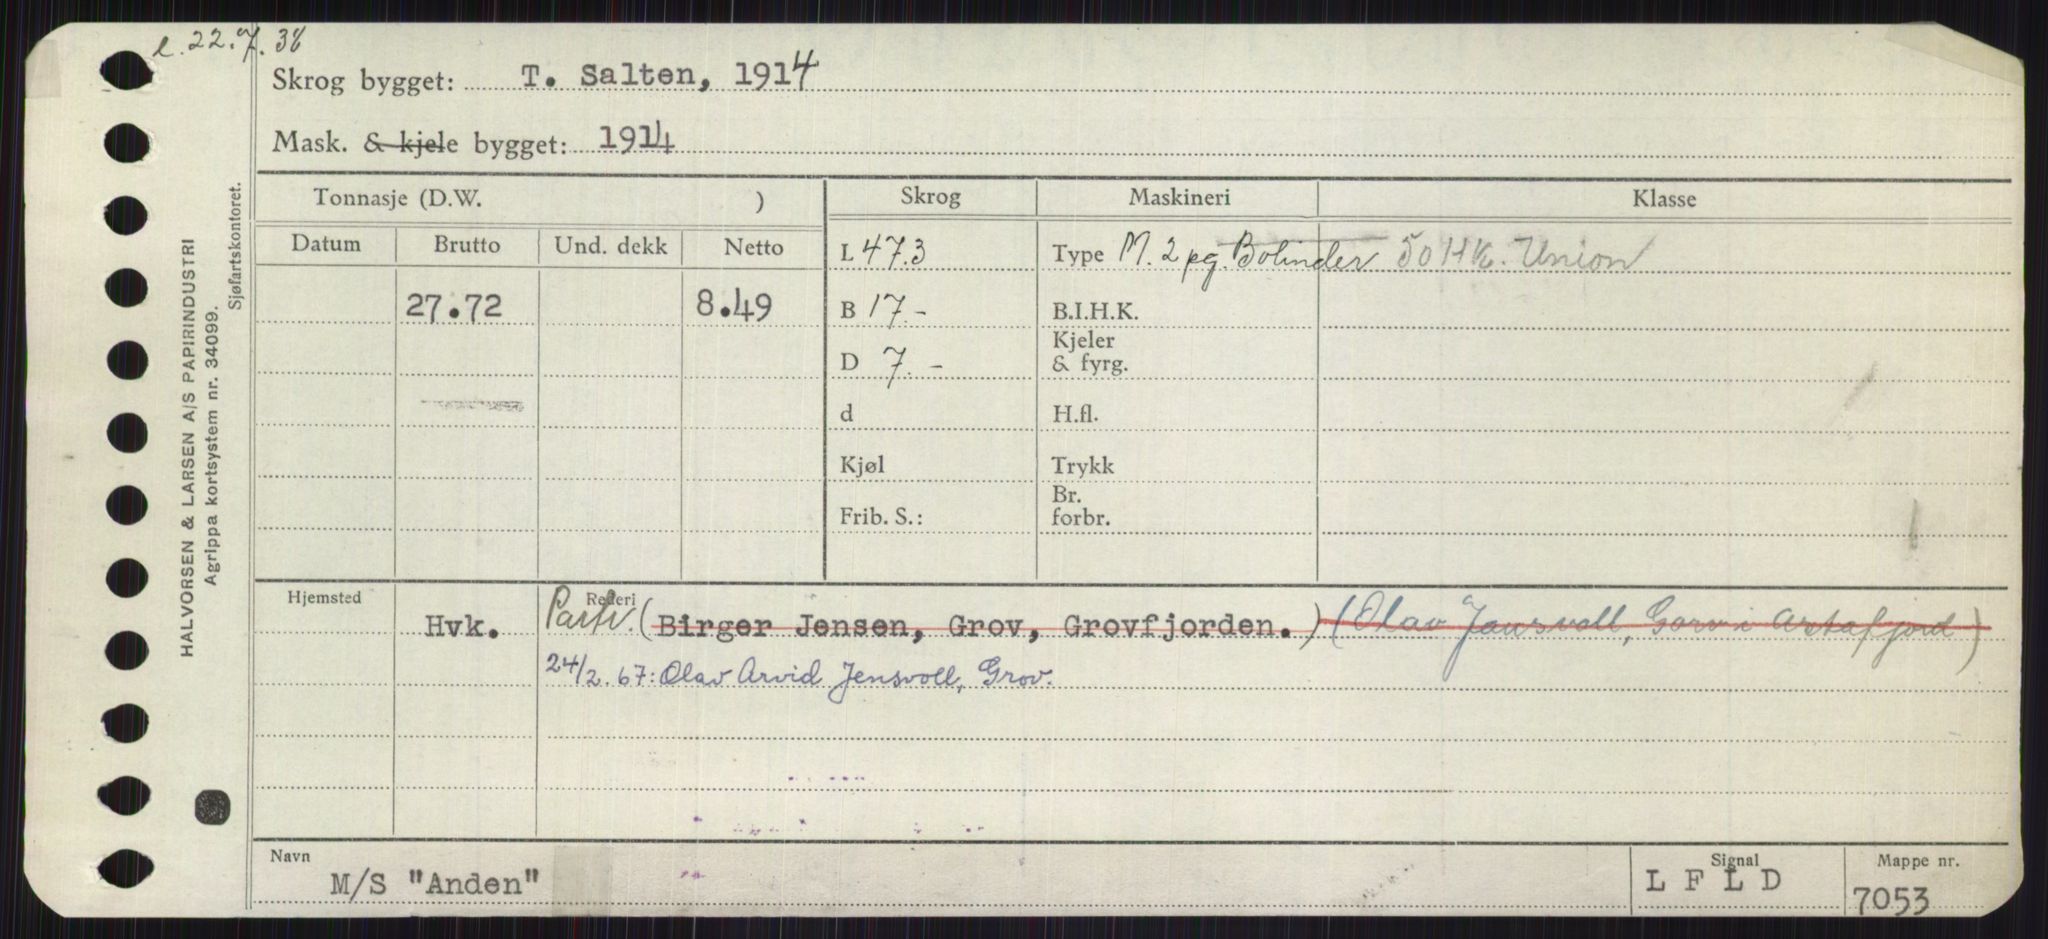 e. 22.7.38
Skrog bygget: T. Salten, 1914
Mask. & kjele bygget: 1914
Tonnasje (D.W. ) Skrog Maskineri Klasse
Datum Brutto Und. dekk Netto L 47.3 Type M. 2 pg. Bolinder 50 HK. Union
27.72 8.49 B 17.- B.I.H.K.
D 7.- Kjeler
& fyrg.
d H.fl.
Kjøl Trykk
Frib. S.: Br.
forbr.
Hjemsted Rederi
Hvk. Partr. (Birger Jensen, Grov, Grovfjorden.) (Olav Jensvoll, Grov i Astafjord)
24/2.67: Olav Arvid Jensvoll, Grov.
Navn Signal Mappe nr.
M/S "Anden" L F L D 7053
HALVORSEN & LARSEN A/S PAPIRINDUSTRI
Agrippa kortsystem nr. 34099.
Sjøfartskontoret.